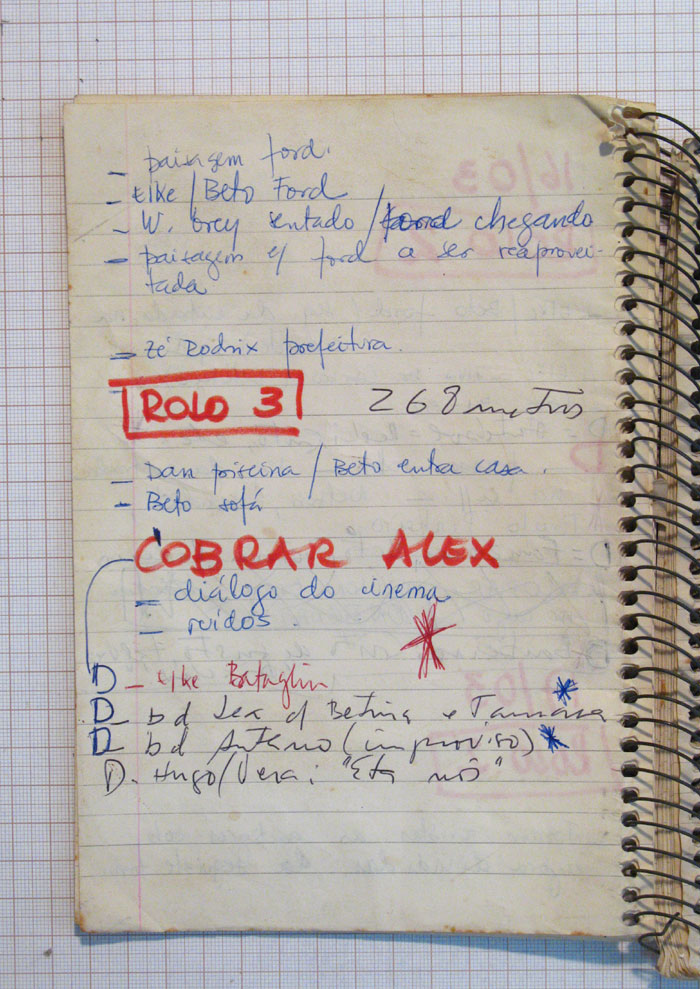 — paisagem ford.
— Elke / Beto Ford
— W. Grey sentado / ford chegando
— paisagem c/ ford a ser reaprovei-
tada
— Zé Rodrix prefeitura.
ROLO 3 268 metros
— Dan piscina / Beto entra casa.
— Beto sofá
COBRAR ALEX
— diálogo do cinema
— ruídos.
D — Elke Bataglin
D — bd Lex c/ Betina e Tamara
D — bd Antero (improviso)
D. Hugo/Vera: "Eta nós"
16/03